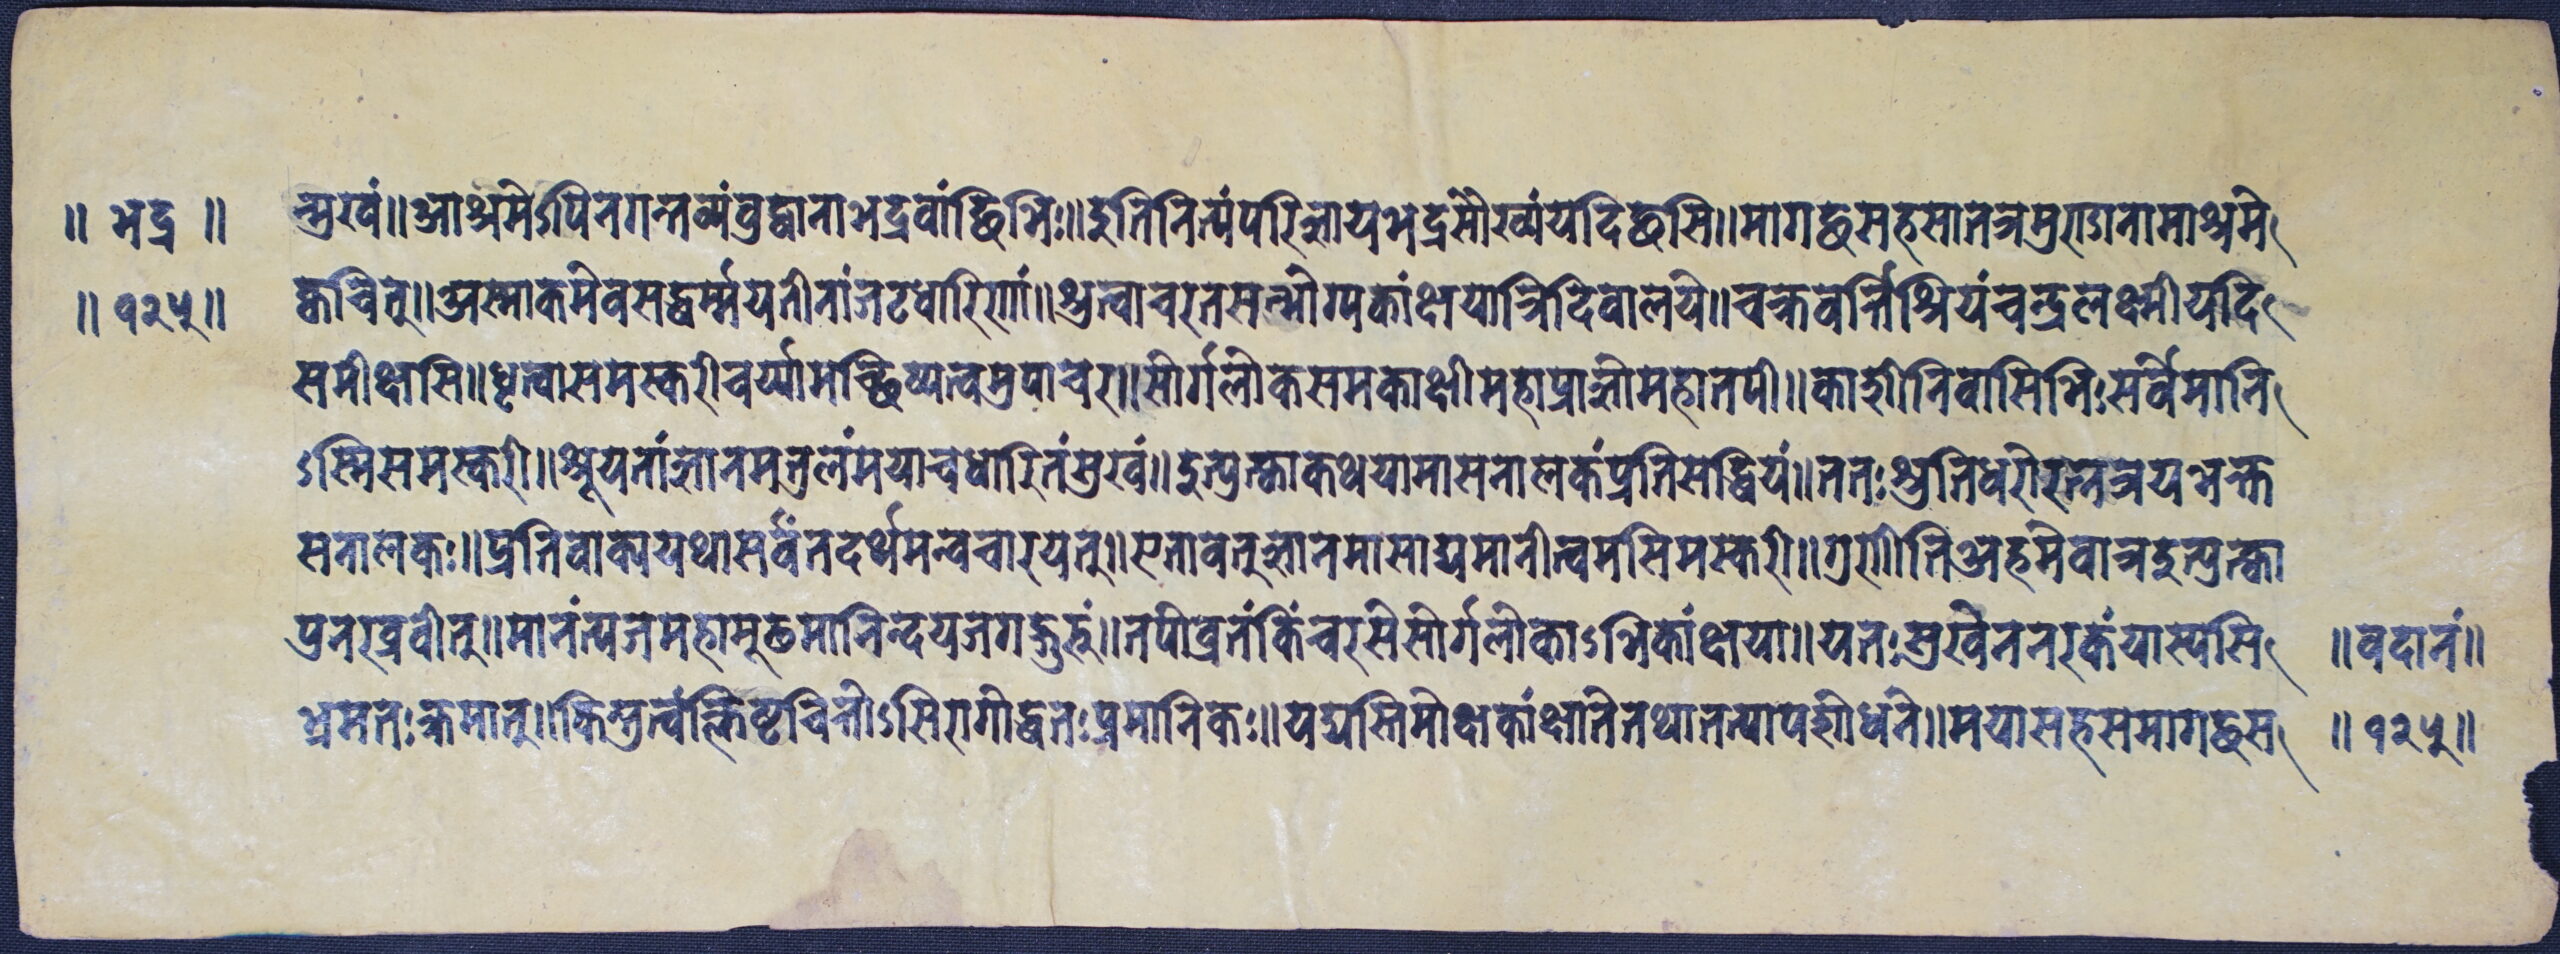 ॥ भद्र ॥
॥ १२५ ॥
न्मुखं॥ आश्रमेऽपि न गन्तव्यं बुद्धाना भद्रवांछिभिः॥ इति नित्यं परिज्ञाय भद्रसौख्यं यदिछसि॥ मा गछ सहसा तत्र मुराज्ञनामाश्रमे
क्वचित्॥ अस्माकमेव सद्धर्म्मयतीनां जटधारिणां॥ श्रुत्वा चर तसम्भोग्यकांक्षया त्रिदिवालये॥ चक्रवर्त्तिश्रियं चन्द्रलक्ष्मी यदि
समीक्षसि॥ धृत्वा स मस्करीचर्य्यामछिष्यत्वमुपाचर॥ सोर्गलोकसमकाक्षी महाप्राज्ञो महातपी॥ काशीनिवासिभिः सर्वेमानि
ऽस्मि स मस्करी॥ श्रूयतां ज्ञानमतुलं मया च धारितं मुखं॥ इत्युक्त्वा कथयामास नालकं प्रति सेद्धियं॥ ततः श्रुतिधरो रत्नत्रयभक्त
स नालकः॥ प्रतिवाक्य यथासर्वं तदर्थमन्वचारयेत्॥ एतावत् ज्ञानमासाद्य मानी त्वमसि मस्करी॥ गुणीति अहमेवात्र इत्युक्त्वा
पुनरब्रवीत्॥ मानं त्यज महामूढ मा निन्दय जगद्गुरुं॥ तपोव्रतं किं चरसे सोर्गलोकाऽभिकांक्षया॥ यतः सुखेन नरकं यास्यसि
भ्रमतः क्रमात्॥ किन्तु त्वं क्लिष्टचित्तोऽसि रागोद्धतः प्रमानिकः॥ यद्यस्ति मोक्षकांक्षा ते तथा तत्याप शोधने॥ मया सह समागछ स
॥ वदानं॥
॥ १२५॥